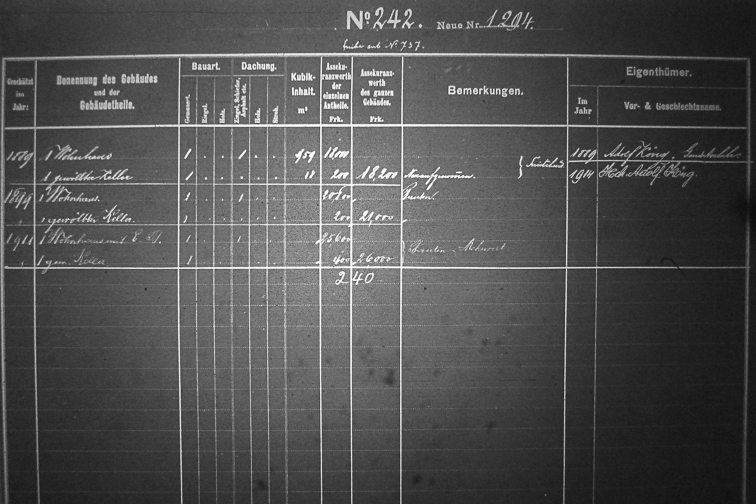 No 242. Neue Nr. 1294.
früher sub No 737.
Geschätzt im Jahr:
Benennung des Gebäudes und der Gebäudetheile.
Bauart.
Gemauert.
Riegel.
Holz.
Dachung.
Ziegel, Schiefer, Asphalt etc.
Holz.
Stroh.
Kubik-Inhalt. m³
Assekuranzwerth der einzelnen Antheile. Frk.
Assekuranzwerth des ganzen Gebäudes. Frk.
Bemerkungen.
Eigenthümer.
Im Jahr
Vor- & Geschlechtsname.
1889 1 Wohnhaus 1 . . 1 . . 959 18,000 1889 Adolf König,
1 gewölbter Keller 1 . . . . . 18 200 18,200 1914 Adolf König.
1899 1 Wohnhaus. 1 . . 1
" 1 gewölbter Keller. 1 200 21,000
1911 1 Wohnhaus 1 . . 1 25600
" 1 gew. Keller 1 400 26000
240